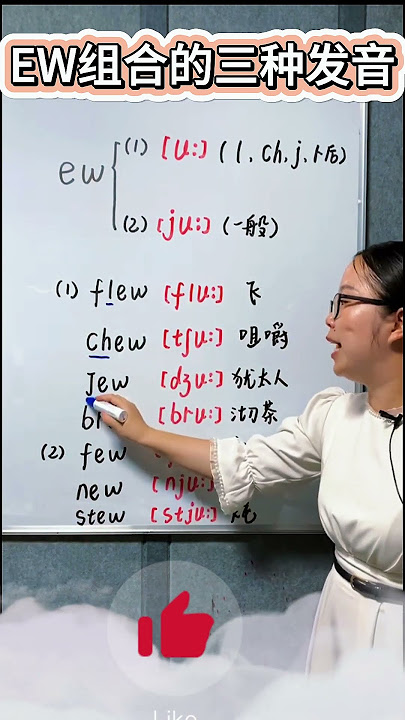 EW组合的三种发音
(1) [u:] (l, ch, j, r后)
ew
(2) [ju:] (一般)
(1) flew [flu:] 飞
chew [tʃu:] 咀嚼
Jew [dʒu:] 犹太人
br [bru:] 沏茶
(2) few
new [nju:]
stew [stju:] 炖
Like